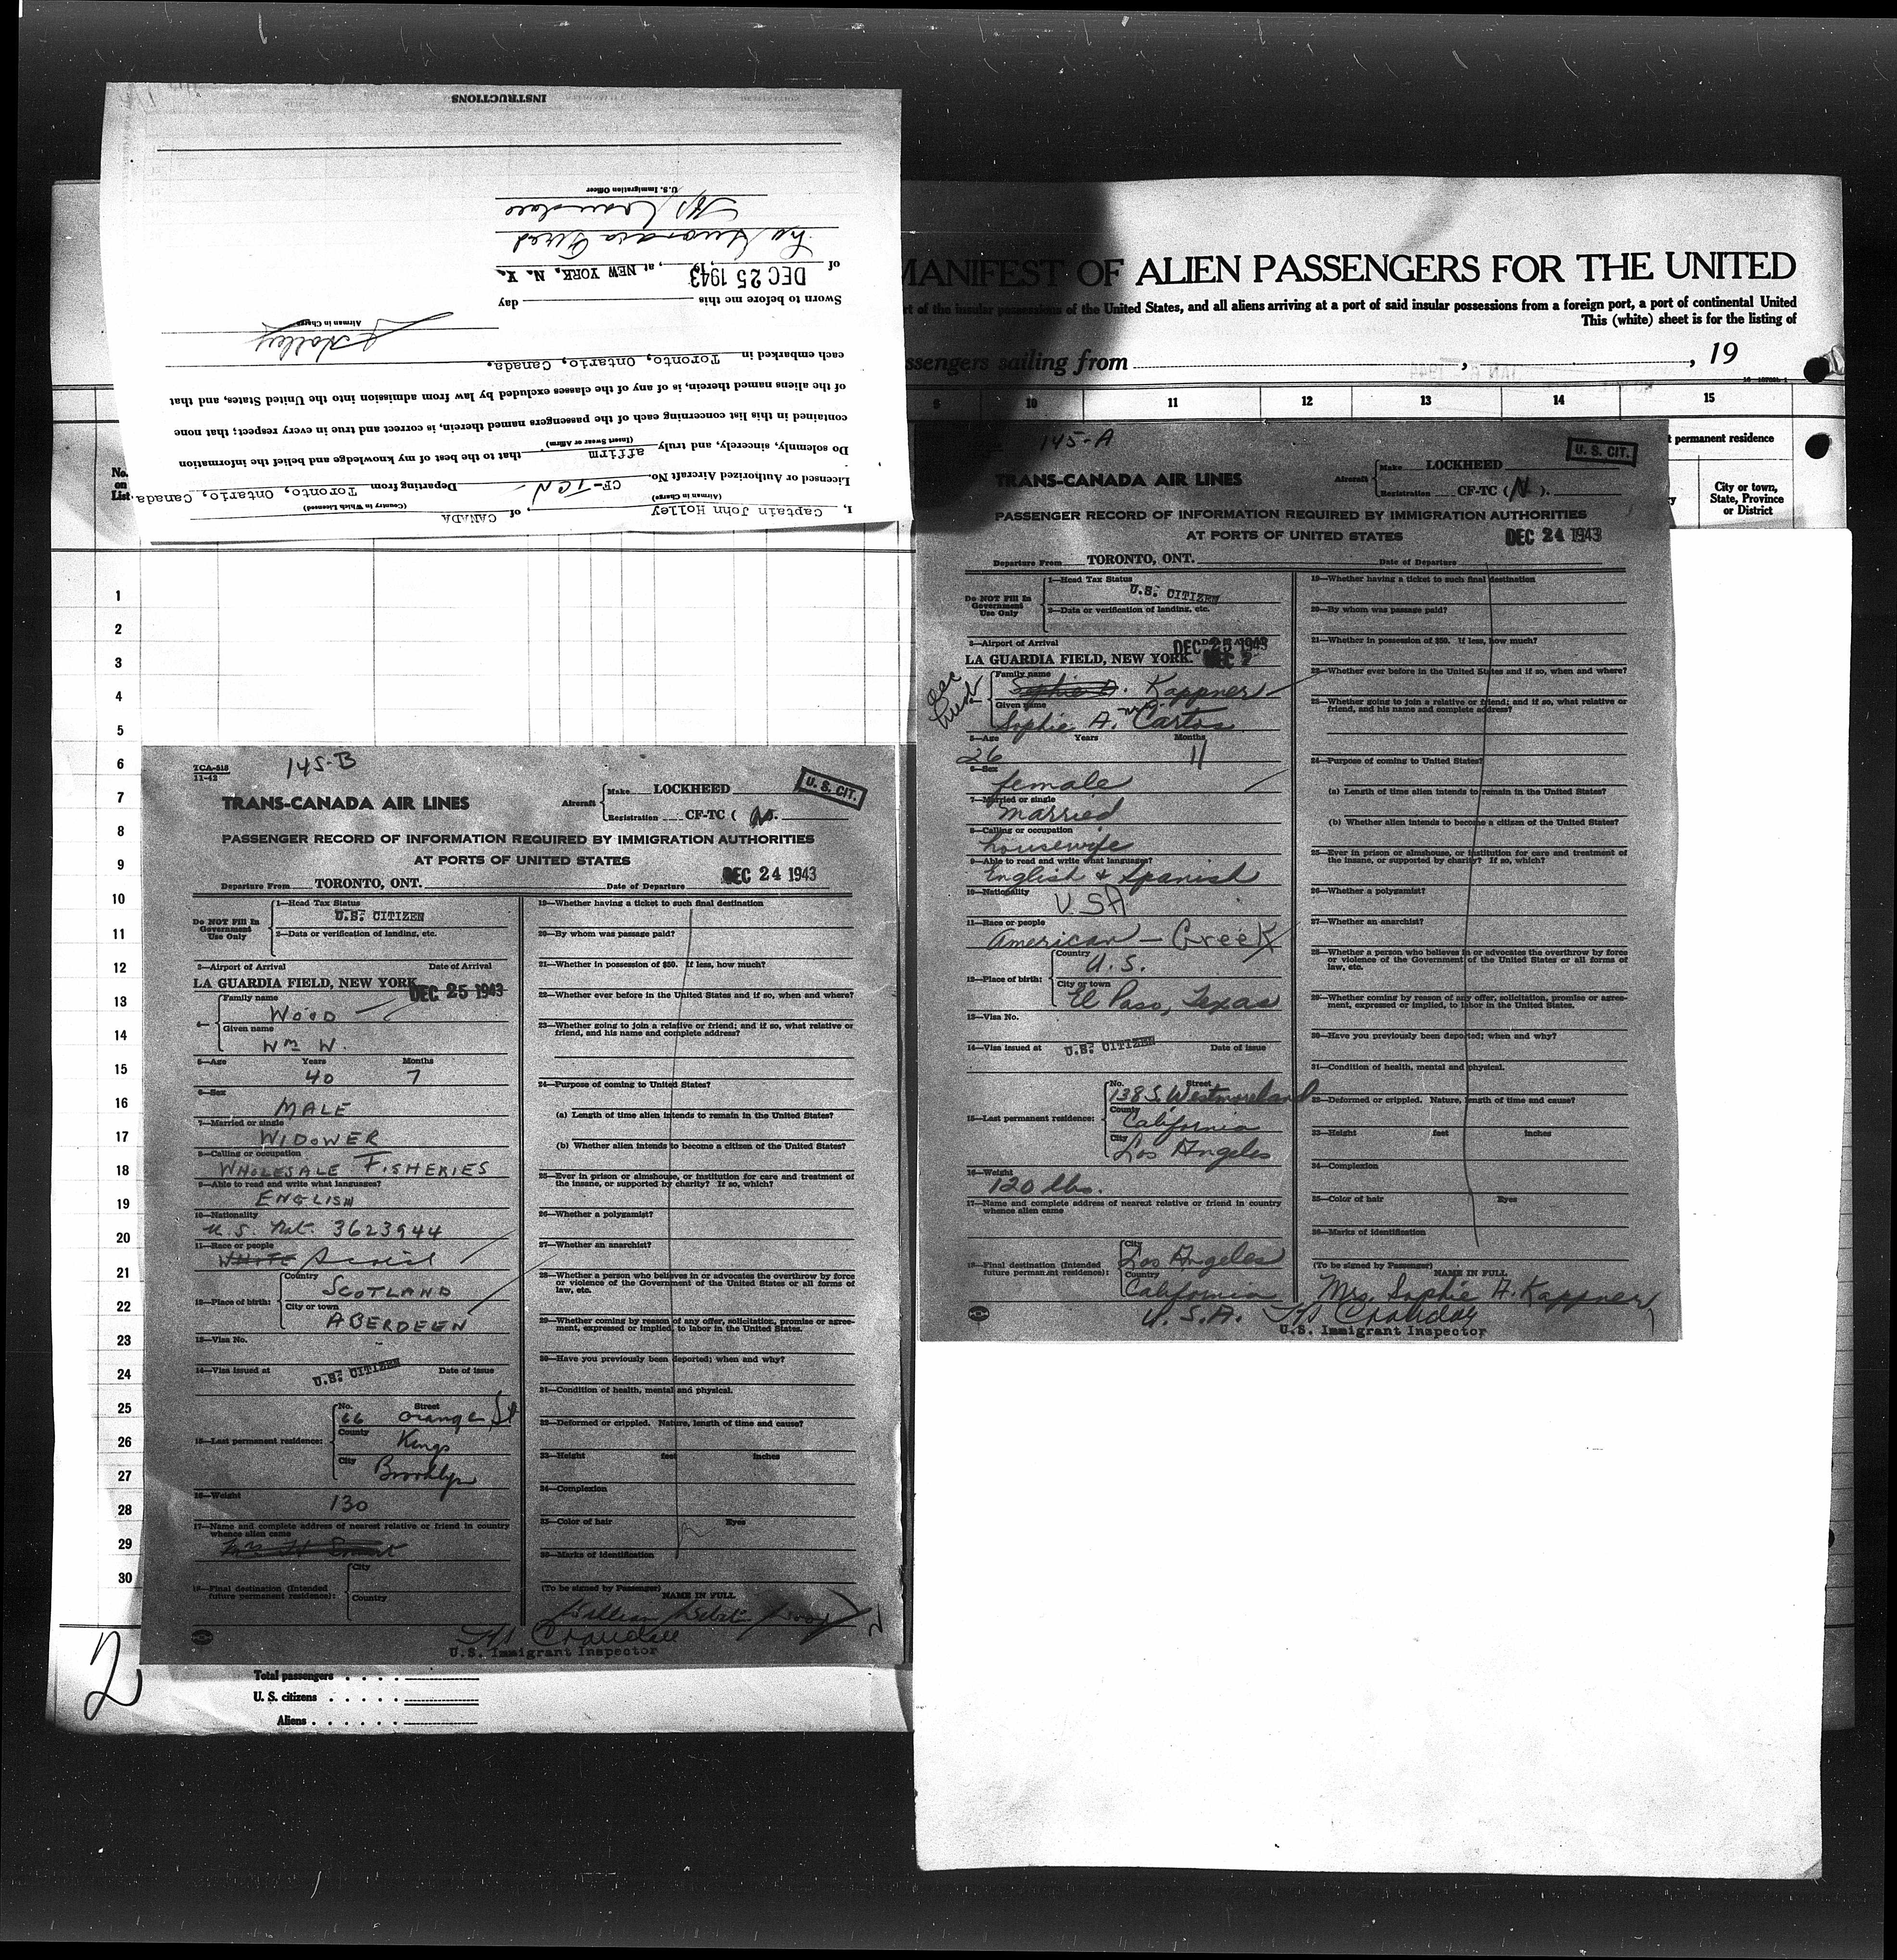 INSTRUCTIONS
I, Captain John Holley, of CANADA
(Airman in Charge) (Country in Which Licensed)
Licensed or Authorized Aircraft No. CF-TCN Departing from Toronto, Ontario, Canada.
Do solemnly, sincerely, and truly affirm that to the best of my knowledge and belief the information
(Insert Swear or Affirm)
contained in this list concerning each of the passengers named therein, is correct and true in every respect; that none
of the aliens named therein, is of any of the classes excluded by law from admission into the United States, and that
each embarked in Toronto, Ontario, Canada.
J Holley
Airman in Charge
Sworn to before me this day
of DEC 25 1943, 19, at NEW YORK, N. Y.
U.S. Immigration Officer
MANIFEST OF ALIEN PASSENGERS FOR THE UNITED
of the insular possessions of the United States, and all aliens arriving at a port of said insular possessions from a foreign port, a port of continental United
This (white) sheet is for the listing of
ssengers sailing from , , 19
10 11 12 13 14 15
permanent residence
No. on List
City or town, State, Province or District
1
2
3
4
5
6
7
8
9
10
11
12
13
14
15
16
17
18
19
20
21
22
23
24
25
26
27
28
29
30
2
Total passengers
U. S. citizens
Aliens
TCA-518
11-42
145-B
U. S. CIT.
TRANS-CANADA AIR LINES
Aircraft Make LOCKHEED
Registration CF-TC ( N.
PASSENGER RECORD OF INFORMATION REQUIRED BY IMMIGRATION AUTHORITIES
AT PORTS OF UNITED STATES
DEC 24 1943
Departure From TORONTO, ONT. Date of Departure
Do NOT Fill In Government Use Only
1—Head Tax Status
U.S. CITIZEN
2—Data or verification of landing, etc.
3—Airport of Arrival Date of Arrival
LA GUARDIA FIELD, NEW YORK DEC 25 1943
4— Family name
WOOD
Given name
Wm W.
5—Age Years Months
40 7
6—Sex
MALE
7—Married or single
WIDOWER
8—Calling or occupation
WHOLESALE FISHERIES
9—Able to read and write what languages?
ENGLISH
10—Nationality
U.S. Nat. 3623944
11—Race or people
WHITE
12—Place of birth: Country
SCOTLAND
City or town
ABERDEEN
13—Visa No.
14—Visa issued at U.S. CITIZEN Date of issue
15—Last permanent residence: No. Street
66 Orange St
County
Kings
City
Brooklyn
16—Weight
130
17—Name and complete address of nearest relative or friend in country whence alien came
18—Final destination (Intended future permanent residence): City
Country
19—Whether having a ticket to such final destination
20—By whom was passage paid?
21—Whether in possession of $50. If less, how much?
22—Whether ever before in the United States and if so, when and where?
23—Whether going to join a relative or friend; and if so, what relative or friend, and his name and complete address?
24—Purpose of coming to United States?
(a) Length of time alien intends to remain in the United States?
(b) Whether alien intends to become a citizen of the United States?
25—Ever in prison or almshouse, or institution for care and treatment of the insane, or supported by charity? If so, which?
26—Whether a polygamist?
27—Whether an anarchist?
28—Whether a person who believes in or advocates the overthrow by force or violence of the Government of the United States or all forms of law, etc.
29—Whether coming by reason of any offer, solicitation, promise or agreement, expressed or implied, to labor in the United States.
30—Have you previously been deported; when and why?
31—Condition of health, mental and physical.
32—Deformed or crippled. Nature, length of time and cause?
33—Height feet inches
34—Complexion
35—Color of hair Eyes
36—Marks of identification
(To be signed by Passenger)
NAME IN FULL
U.S. Immigrant Inspector
145-A
U. S. CIT.
TRANS-CANADA AIR LINES
Aircraft Make LOCKHEED
Registration CF-TC (N).
PASSENGER RECORD OF INFORMATION REQUIRED BY IMMIGRATION AUTHORITIES
AT PORTS OF UNITED STATES
DEC 24 1943
Departure From TORONTO, ONT. Date of Departure
Do NOT Fill In Government Use Only
1—Head Tax Status
U.S. CITIZEN
2—Data or verification of landing, etc.
3—Airport of Arrival
DEC 25 1943
LA GUARDIA FIELD, NEW YORK.
Family name
Sophie A. Kappner
Given name
Sophie A. Cartos
5—Age Years Months
26 11
6—Sex
female
7—Married or single
married
8—Calling or occupation
housewife
9—Able to read and write what languages?
English & Spanish
10—Nationality
USA
11—Race or people
American – Greek
12—Place of birth: Country
U.S.
City or town
El Paso, Texas
13—Visa No.
14—Visa issued at U.S. CITIZEN Date of issue
15—Last permanent residence: No. Street
138 S. Westmoreland
County
California
City
Los Angeles
16—Weight
120 lbs.
17—Name and complete address of nearest relative or friend in country whence alien came
18—Final destination (Intended future permanent residence): City
Los Angeles
Country
California
U.S.A.
19—Whether having a ticket to such final destination
20—By whom was passage paid?
21—Whether in possession of $50. If less, how much?
22—Whether ever before in the United States and if so, when and where?
23—Whether going to join a relative or friend; and if so, what relative or friend, and his name and complete address?
24—Purpose of coming to United States?
(a) Length of time alien intends to remain in the United States?
(b) Whether alien intends to become a citizen of the United States?
25—Ever in prison or almshouse, or institution for care and treatment of the insane, or supported by charity? If so, which?
26—Whether a polygamist?
27—Whether an anarchist?
28—Whether a person who believes in or advocates the overthrow by force or violence of the Government of the United States or all forms of law, etc.
29—Whether coming by reason of any offer, solicitation, promise or agreement, expressed or implied, to labor in the United States.
30—Have you previously been deported; when and why?
31—Condition of health, mental and physical.
32—Deformed or crippled. Nature, length of time and cause?
33—Height feet inches
34—Complexion
35—Color of hair Eyes
36—Marks of identification
(To be signed by Passenger)
NAME IN FULL
Mrs. Sophie A. Kappner
U.S. Immigrant Inspector